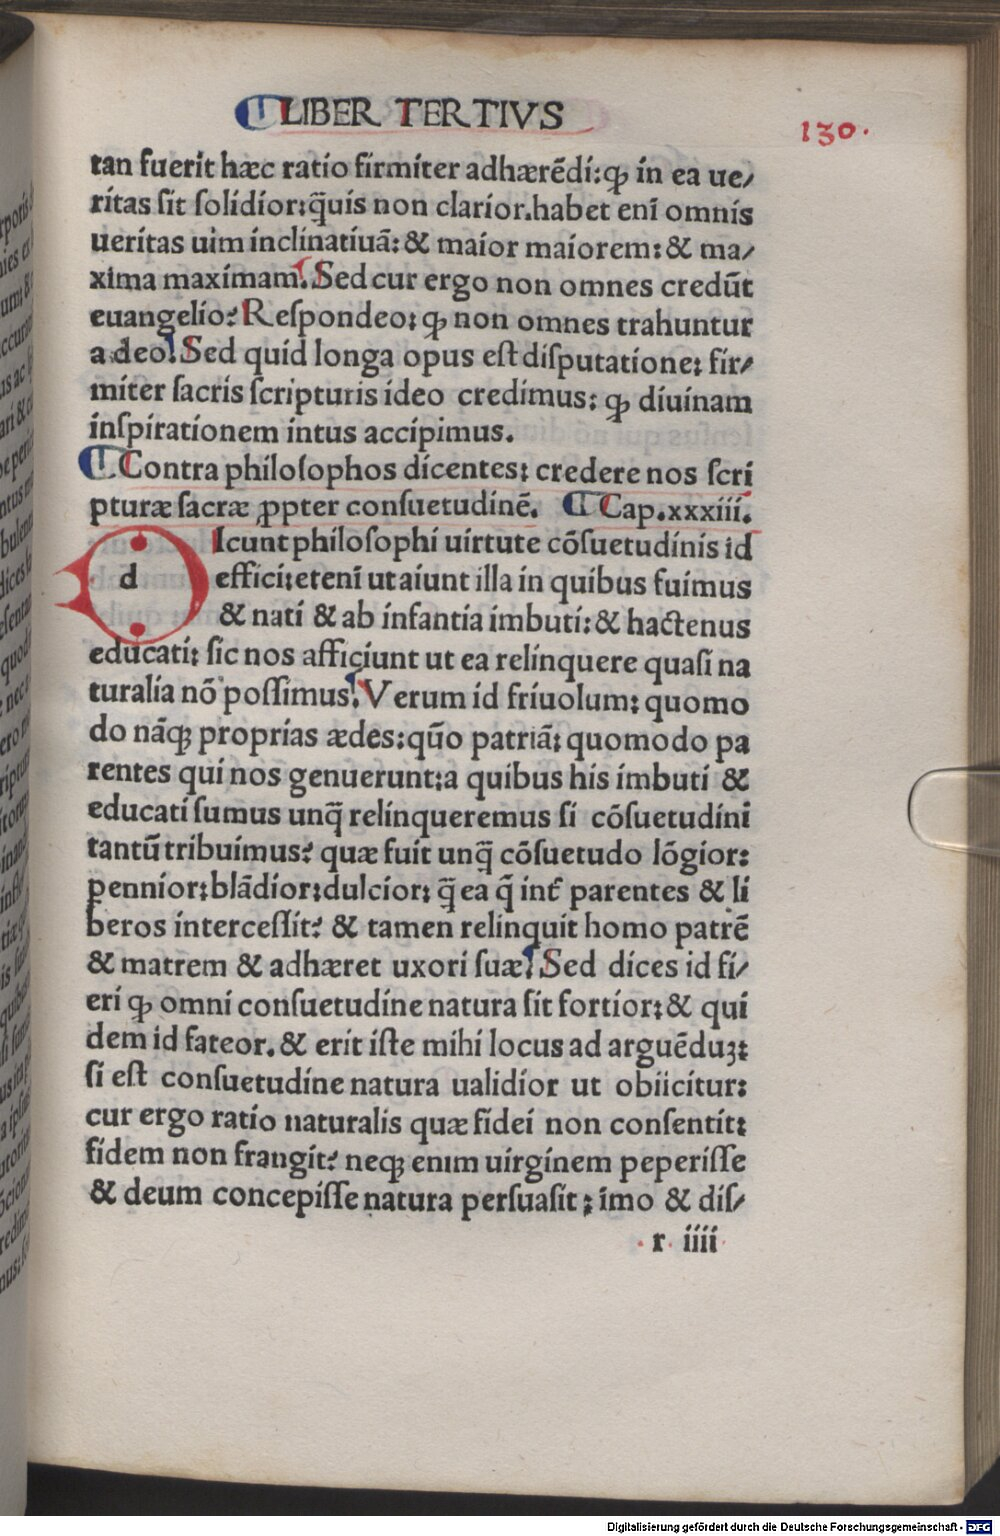 LIBER TERTIVS
130.
tan fuerit hæc ratio firmiter adhærēdi: ꝙ in ea ue/
ritas sit solidior: q̄uis non clarior. habet enī omnis
ueritas uim inclinatiuā: & maior maiorem: & ma/
xima maximam. Sed cur ergo non omnes credūt
euangelio? Respondeo: ꝙ non omnes trahuntur
a deo. Sed quid longa opus est disputatione: fir/
miter sacris scripturis ideo credimus: ꝙ diuinam
inspirationem intus accipimus.
Contra philosophos dicentes: credere nos scri
pturæ sacræ ꝓpter consuetudinē. Cap. xxxiii.
d
Icunt philosophi uirtute cōsuetudinis id
effici: etenī ut aiunt illa in quibus fuimus
& nati & ab infantia imbuti: & hactenus
educati: sic nos afficiunt ut ea relinquere quasi na
turalia nō possimus. Verum id friuolum: quomo
do nāqꝫ proprias ædes: quō patriā: quomodo pa
rentes qui nos genuerunt: a quibus his imbuti &
educati sumus unq̄ relinqueremus si cōsuetudini
tantū tribuimus? quæ fuit unq̄ cōsuetudo lōgior:
ꝑennior: blādior: dulcior: q̄ ea q̄ inť parentes & li
beros intercessit? & tamen relinquit homo patrē
& matrem & adhæret uxori suæ. Sed dices id fi/
eri ꝙ omni consuetudine natura sit fortior: & qui
dem id fateor. & erit iste mihi locus ad arguēduꝫ:
si est consuetudine natura ualidior ut obiicitur:
cur ergo ratio naturalis quæ fidei non consentit:
fidem non frangit? neqꝫ enim uirginem peperisse
& deum concepisse natura persuasit: imo & dis/
r iiii
Digitalisierung gefördert durch die Deutsche Forschungsgemeinschaft - DFG